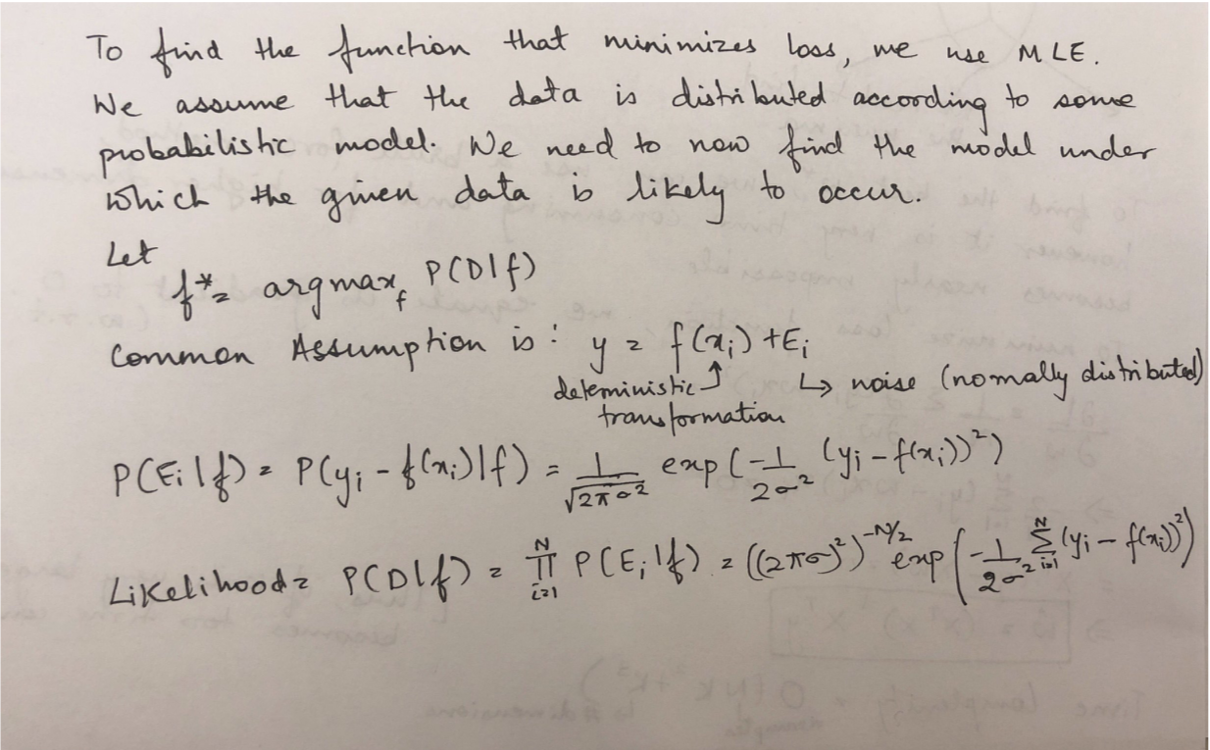 To find the function that minimizes loss, we use MLE.
We assume that the data is distributed according to some
probabilistic model. We need to now find the model under
which the given data is likely to occur.
Let
f* = argmax_f P(D|f)
Common Assumption is : y = f(x_i) + E_i
deterministic ↑ ↳ noise (nomally distributed)
transformation
P(E_i|f) = P(y_i - f(x_i)|f) = 1/√(2πσ²) exp(-1/2σ² (y_i - f(x_i))²)
Likelihood = P(D|f) = ∏_{i=1}^{N} P(E_i|f) = ((2πσ)²)^{-N/2} exp(-1/2σ² Σ_{i=1}^{N} (y_i - f(x_i))²)